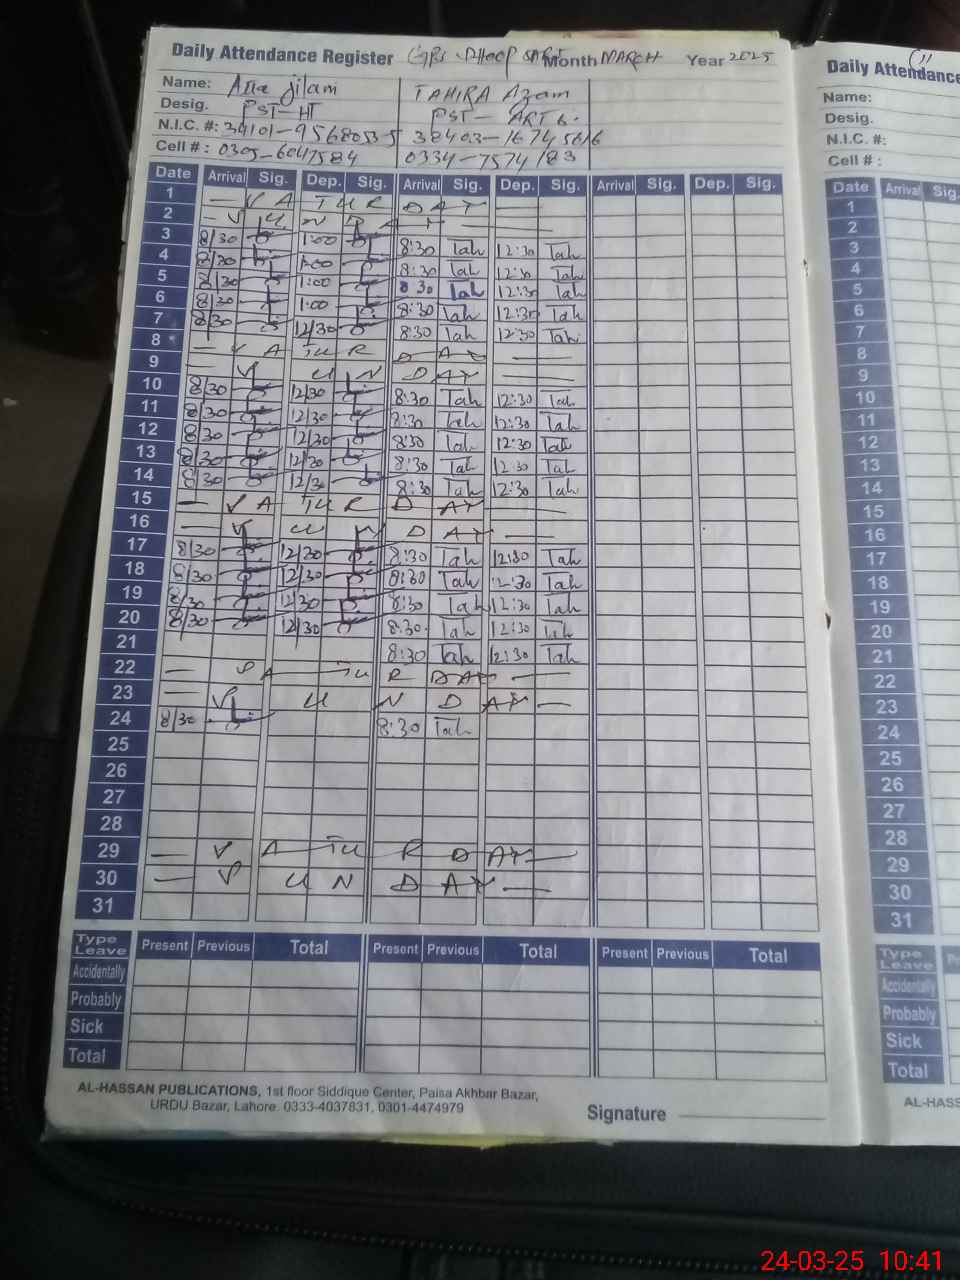 Daily Attendance Register Month MARCH Year 2025
Name: Jilani TAHIRA Azam
Desig. PST-HT PST- ARTb.
N.I.C. #: 34101-9568053-5 38403-1674561-6
Cell #: 0305-6047584 0334-7574183
Date Arrival Sig. Dep. Sig. Arrival Sig. Dep. Sig. Arrival Sig. Dep. Sig.
1 — S A TUR DAY —
2 — S U N DAY —
3 8/30 1:00 8:30 Tah 12:30 Tah
4 8/30 1:00 8:30 Tah 12:30 Tah
5 8/30 1:00 8:30 Tah 12:30 Tah
6 8/30 1:00 8:30 Tah 12:30 Tah
7 8/30 12/30 8:30 Tah 12:30 Tah
8 — S A TUR DAY —
9 — S U N DAY —
10 8/30 12/30 8:30 Tah 12:30 Tah
11 8/30 12/30 8:30 Tah 12:30 Tah
12 8/30 12/30 8:30 Tah 12:30 Tah
13 8/30 12/30 8:30 Tah 12:30 Tah
14 8/30 12/30 8:30 Tah 12:30 Tah
15 — S A TUR DAY —
16 — S U N DAY —
17 8/30 12/30 8:30 Tah 12:30 Tah
18 8/30 12/30 8:30 Tah 12:30 Tah
19 8/30 12/30 8:30 Tah 12:30 Tah
20 8/30 12/30 8:30 Tah 12:30 Tah
21 8:30 Tah 12:30 Tah
22 — S A TU R DAY —
23 — S U N DAY —
24 8/30 8:30 Tah
25
26
27
28
29 — S A TU R DAY —
30 — S U N DAY —
31
Type Leave Present Previous Total Present Previous Total Present Previous Total
Accidentally
Probably
Sick
Total
AL-HASSAN PUBLICATIONS, 1st floor Siddique Center, Paisa Akhbar Bazar,
URDU Bazar, Lahore. 0333-4037831, 0301-4474979
Signature
Daily Attendance
Name:
Desig.
N.I.C. #:
Cell #:
Date Arrival Sig.
1
2
3
4
5
6
7
8
9
10
11
12
13
14
15
16
17
18
19
20
21
22
23
24
25
26
27
28
29
30
31
Type Leave
Accidentally
Probably
Sick
Total
AL-HASS
24-03-25 10:41